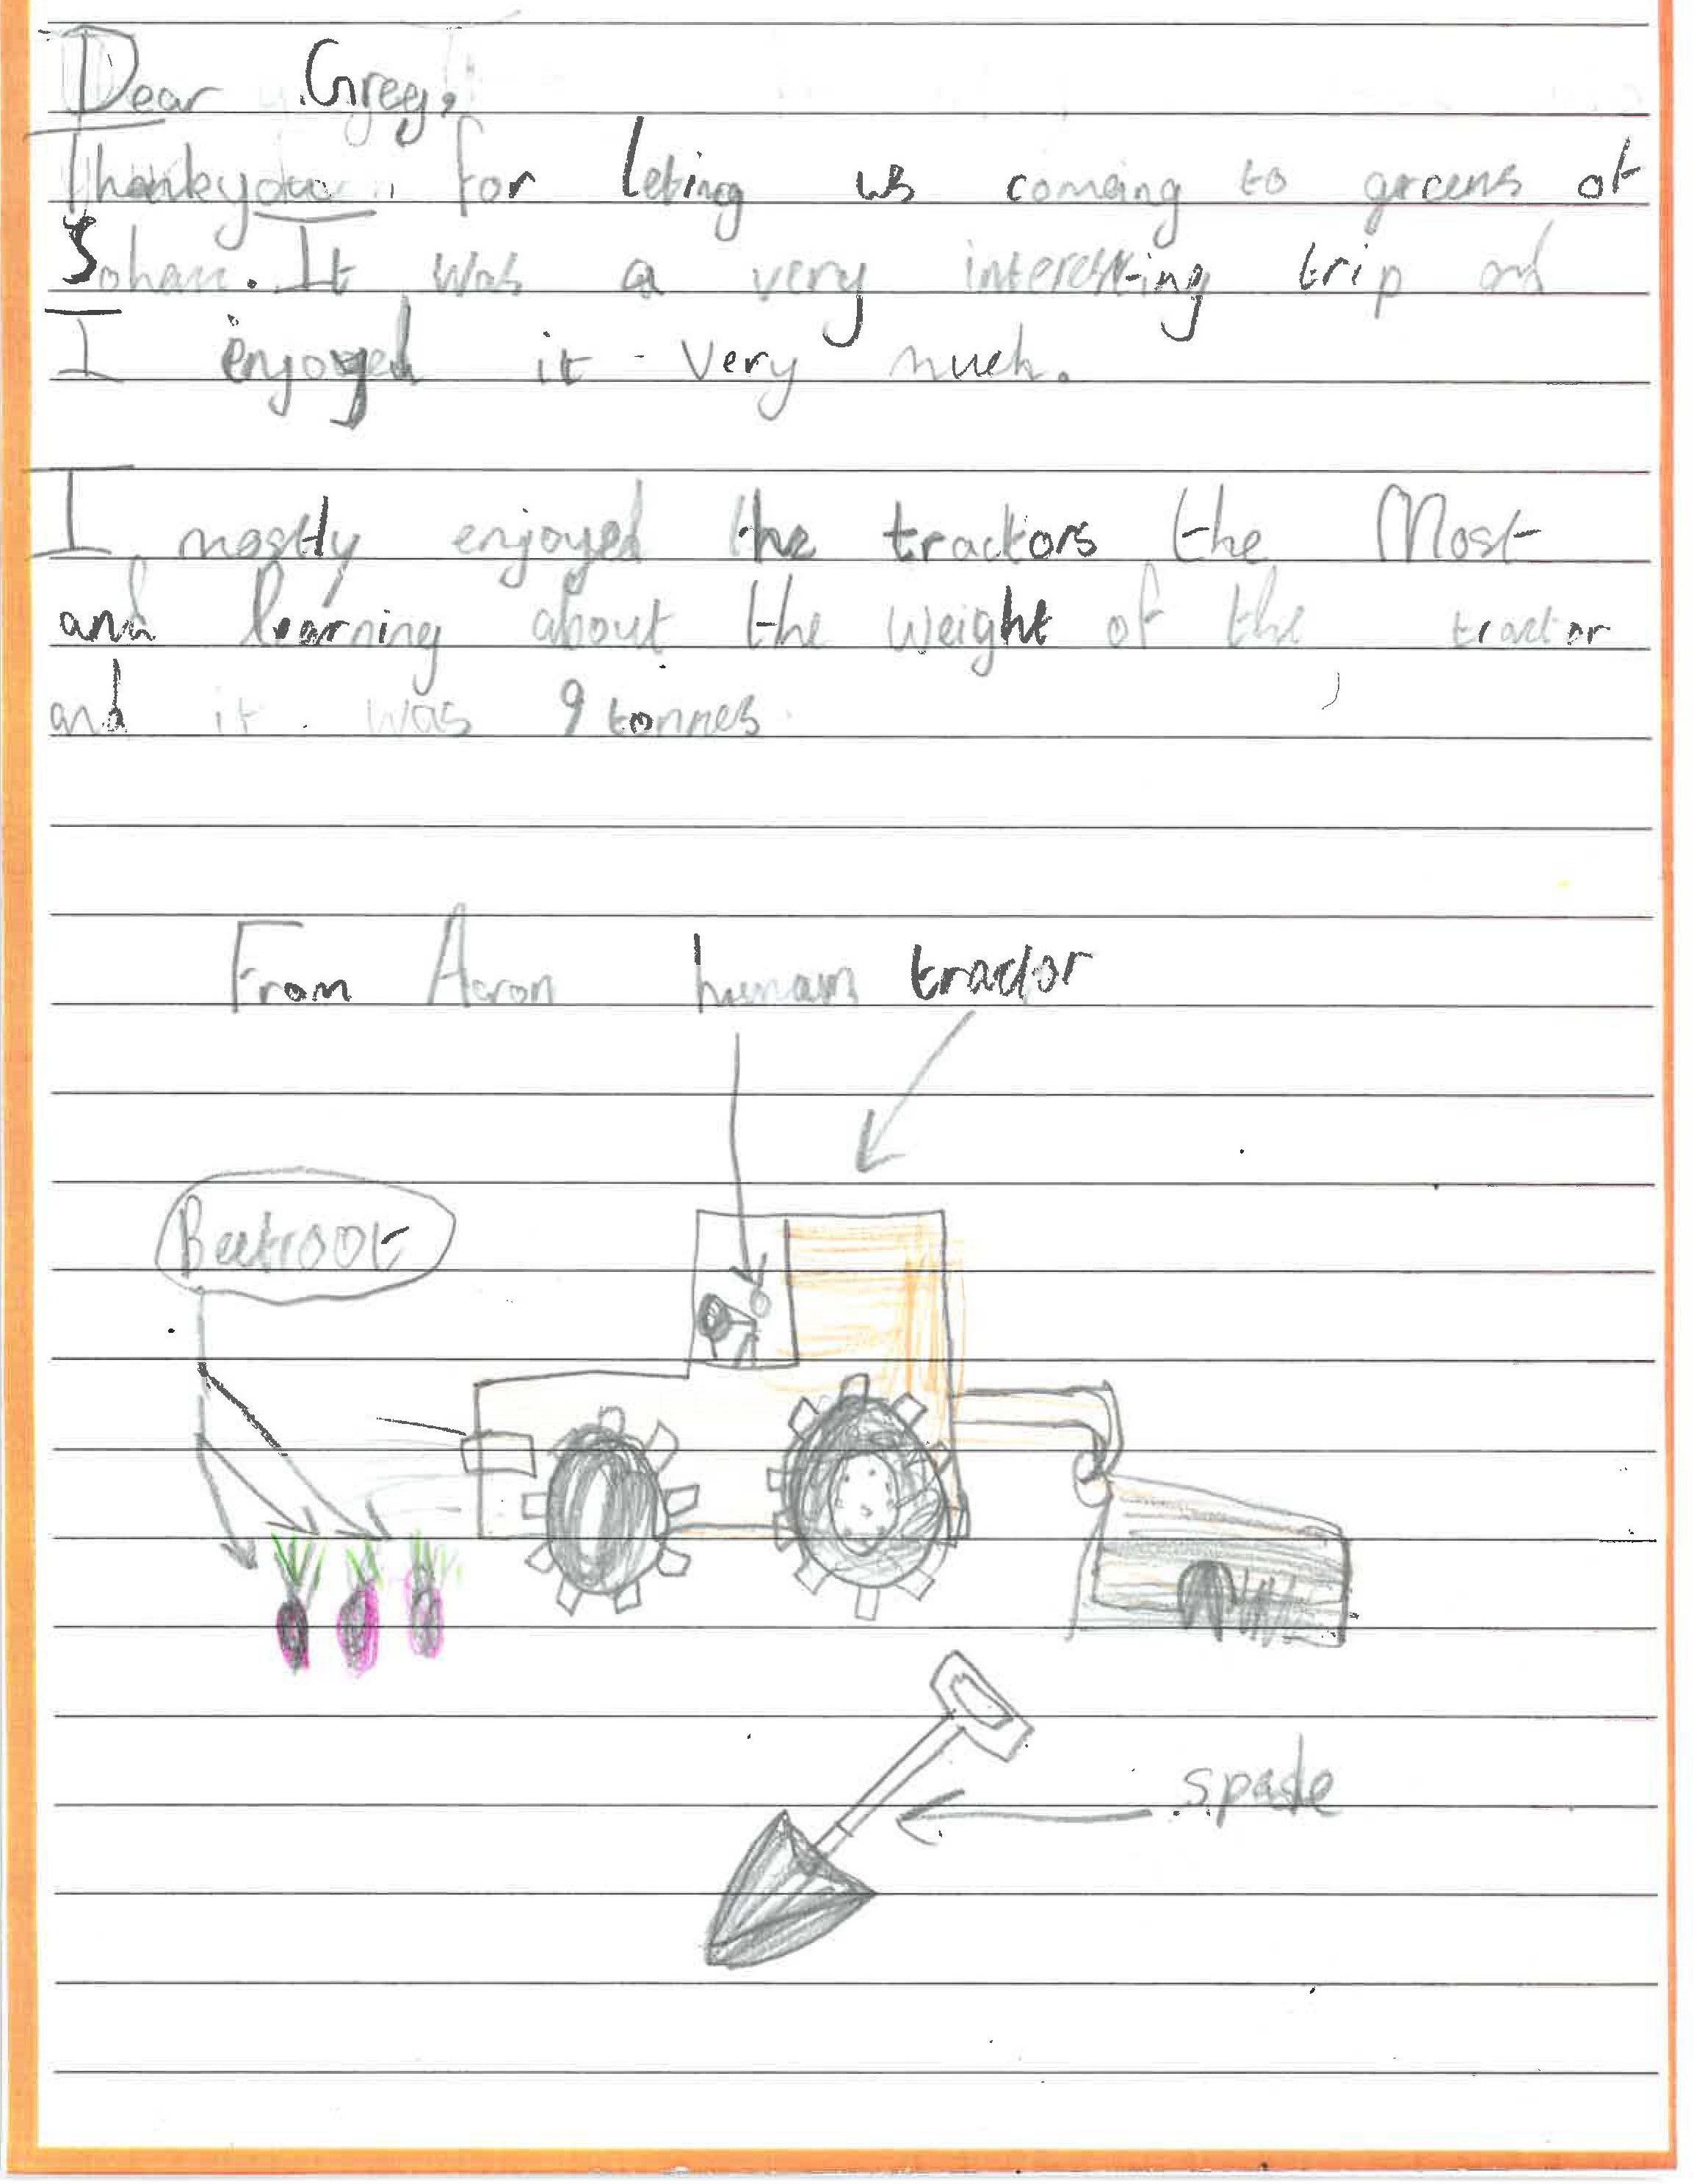 Dear Greg,
Thankyou for leting us comeing to greens of
Soham. It was a very interesting trip and
I enjoyed it very much.
I mostly enjoyed the tractors the Most
and learning about the weight of the tractor
and it was 9 tonnes
From Aaron human tractor
Beetroot
spade